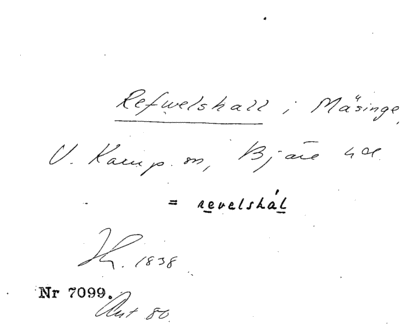 Refwelshall i Mäsinge,
V. Karup sn, Bjäre hd
= revelshål
Kr. 1838
Nr 7099.
Ant 80